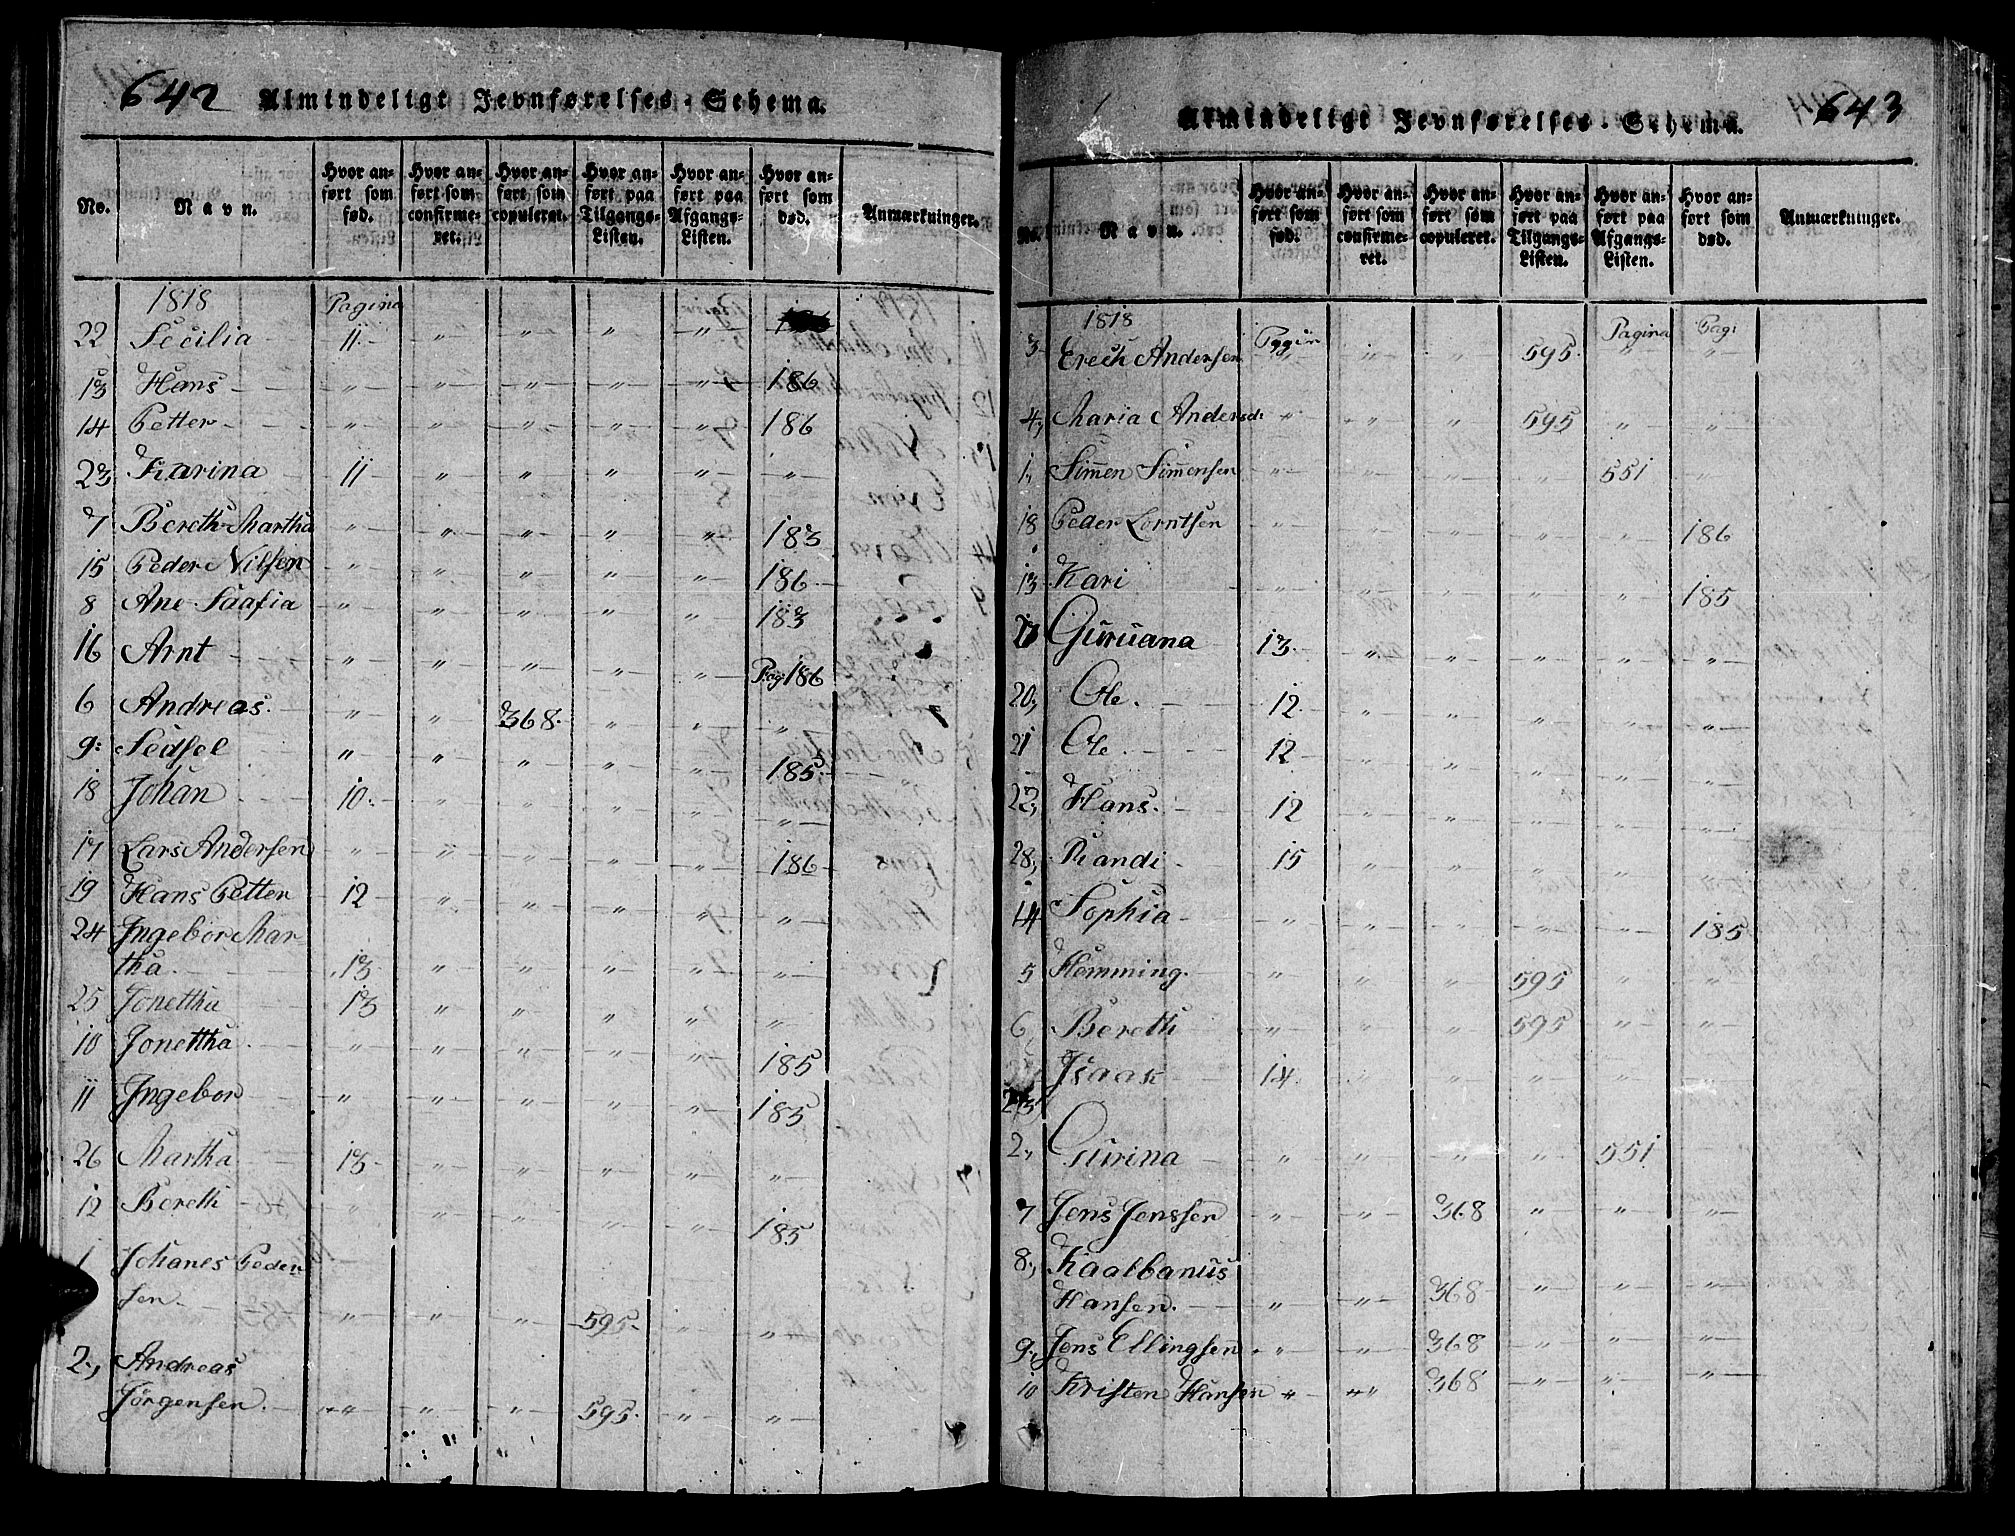 642 Almindeligt Jevnførelses-Schema.
No. Navn. Hvor anført som fød. Hvor anført som confirmeret. Hvor anført som copuleret. Hvor anført paa Tilgangs-Listen. Hvor anført paa Afgangs-Listen. Hvor anført som død. Anmærkninger.
1818 Pagina
22 Secilia 11 " " " "
13 Hans " " " " " 186
14 Petter " " " " " 186
23 Karina 11 " " " " "
7 Bereth Martha " " " " " 183
15 Peder Nilsen " " " " " 186
8 Ane Saafia " " " " " 183
16 Arnt " " " " " Pag 186
6 Andreas " " 368 " " "
9 Sedsel " " " " " 185
18 Johan 10 " " " " "
17 Lars Andersen " " " " " 186
19 Hans Petter 12 " " " " "
24 Ingebor Mar-
tha. 13 " " " " "
25 Jonettha 13 " " " " "
10 Jonettha " " " " " 185
11 Ingebor " " " " " 185
26 Martha 13 " " " " "
12 Bereth " " " " " 185
1 Johanes Peder
sen. " " " 595 " "
2., Andreas
Jörgensen. " " " 595 " "
Almindeligt Jevnførelses-Schema. 643
No. Navn. Hvor anført som fød. Hvor anført som confirmeret. Hvor anført som copuleret. Hvor anført paa Tilgangs-Listen. Hvor anført paa Afgangs-Listen. Hvor anført som død. Anmærkninger.
1818 Pagina Pagi
3 Erech Andersen " " " 595 " "
4, Maria Andersd: " " " 595 " "
1, Simen Simensen " " " " 551
18 Peder Lorntsen " " " " " 186
13 Kari " " " " " 185
Guruana 13 " " " " "
20, Ole. 12 " " " " "
21 Ole. 12 " " " " "
22, Hans. 12 " " " " "
28, Randi 15 " " " " "
14 Sophia " " " " " 185
5 Hemming. " " " 595 " "
6 Bereth " " " 595 " "
Isaak 14 " " " " "
23
2, Gurina " " " " 551
7 Jens Jenssen " " 368 " " "
8, Kaalbanus
Hansen. " " 368 " " "
9, Jens Ellingsen " " 368 " " "
10 Kristen Hansen " " 368 " " "